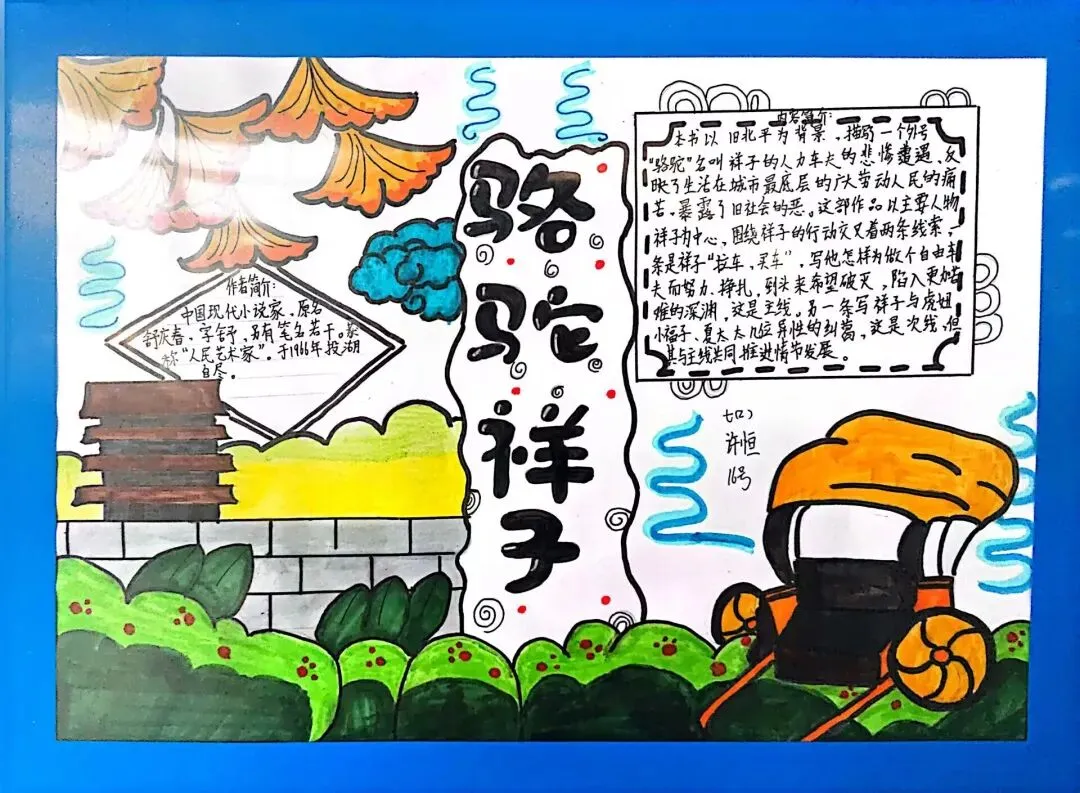 骆驼祥子
作者简介:
中国现代小说家,原名
舒庆春,字舒,另有笔名若干。
称“人民艺术家”。于1966年投湖
自尽。
内容简介:
本书以旧北平为背景,描写一个外号
“骆驼”名叫祥子的人力车夫的悲惨遭遇,反
映了生活在城市最底层的广大劳动人民的痛
苦,暴露了旧社会的恶。这部作品以主要人物
祥子为中心,围绕祥子的行动交叉着两条线索,
条是祥子“拉车,买车”,写他怎样为做个自由车
夫而努力、挣扎,到头来希望破灭,陷入更加
难的深渊,这是主线。另一条写祥子与虎妞
小福子、夏太太几位异性的纠葛,这是次线,但
其与主线共同推进情节发展。
许恒
16号